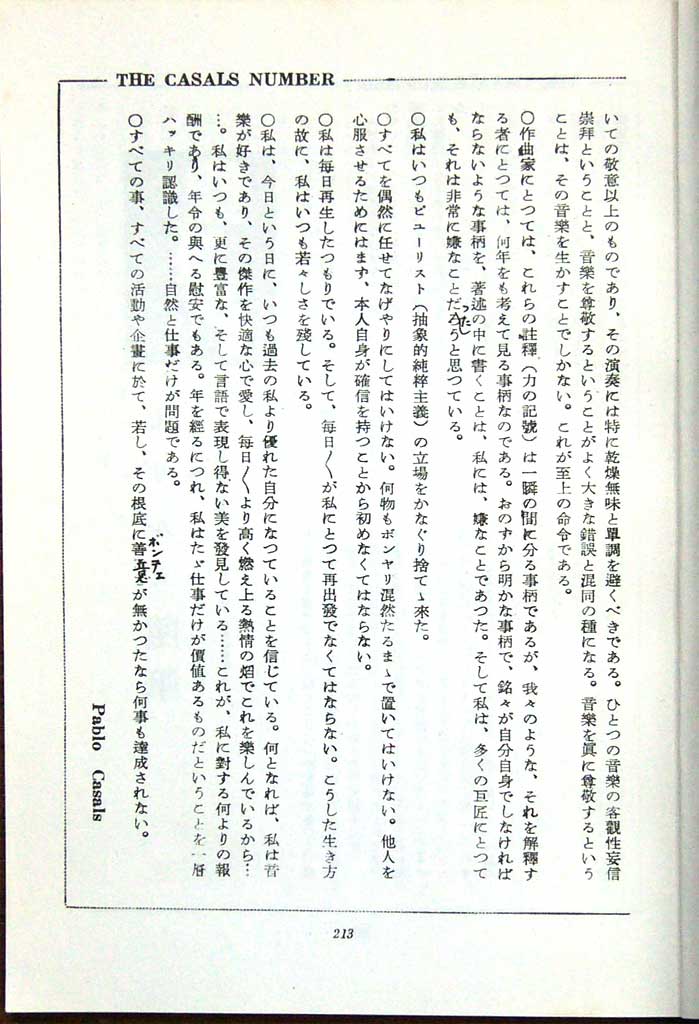 THE CASALS NUMBER
いての敬意以上のものであり、その演奏には特に乾燥無味と單調を避くべきである。ひとつの音樂の客觀性妄信
崇拜ということと、音樂を尊敬するということがよく大きな錯誤と混同の種になる。音樂を眞に尊敬するという
ことは、その音樂を生かすことでしかない。これが至上の命令である。
〇作曲家にとつては、これらの註釋（力の記號）は一瞬の間に分る事柄であるが、我々のような、それを解釋す
る者にとつては、何年をも考えて見る事柄なのである。おのずから明かな事柄で、銘々が自分自身でしなければ
ならないような事柄を、著述の中に書くことは、私には、嫌なことであつた。そして私は、多くの巨匠にとつて
も、それは非常に嫌なことだろうと思つている。
つたし
〇私はいつもピューリスト（抽象的純粹主義）の立場をかなぐり捨てゝ來た。
〇すべてを偶然に任せてなげやりにしてはいけない。何物もボンヤリ混然たるまゝで置いてはいけない。他人を
心服させるためにはまず、本人自身が確信を持つことから初めなくてはならない。
〇私は毎日再生したつもりでいる。そして、毎日〱が私にとつて再出發でなくてはならない。こうした生き方
の故に、私はいつも若々しさを殘している。
〇私は、今日という日に、いつも過去の私より優れた自分になつていることを信じている。何となれば、私は音
樂が好きであり、その傑作を快適な心で愛し、毎日〱より高く燃え上る熱情の焰でこれを樂しんでいるから…
…。私はいつも、更に豐富な、そして言語で表現し得ない美を發見している……これが、私に對する何よりの報
酬であり、年令の與へる慰安でもある。年を經るにつれ、私はたゞ仕事だけが價値あるものだということを一層
ハッキリ認識した。……自然と仕事だけが問題である。
〇すべての事、すべての活動や企畫に於て、若し、その根底に善意が無かつたなら何事も達成されない。
ボンテェ
Pablo Casals
213